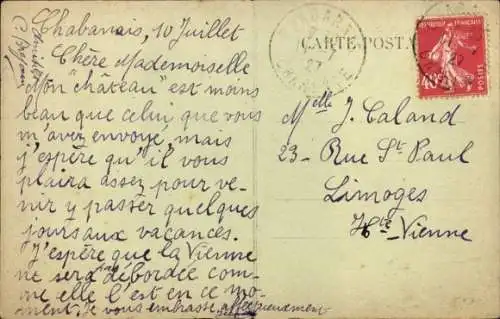 Chabanais, 10 Juillet
Chère Mademoiselle
Mon "château" est moins
beau que celui que vous
m'avez envoyé, mais
j'espère qu'il vous
plaira assez pour ve-
nir y passer quelques
jours aux vacances.
J'espère que la Vienne
ne sera débordée com-
me elle l'est en ce mo-
ment. Je vous embrasse affectueusement
Amitiés
CARTE POST
POSTES
Melle J. Caland
23 - Rue St Paul
Limoges
Hte Vienne